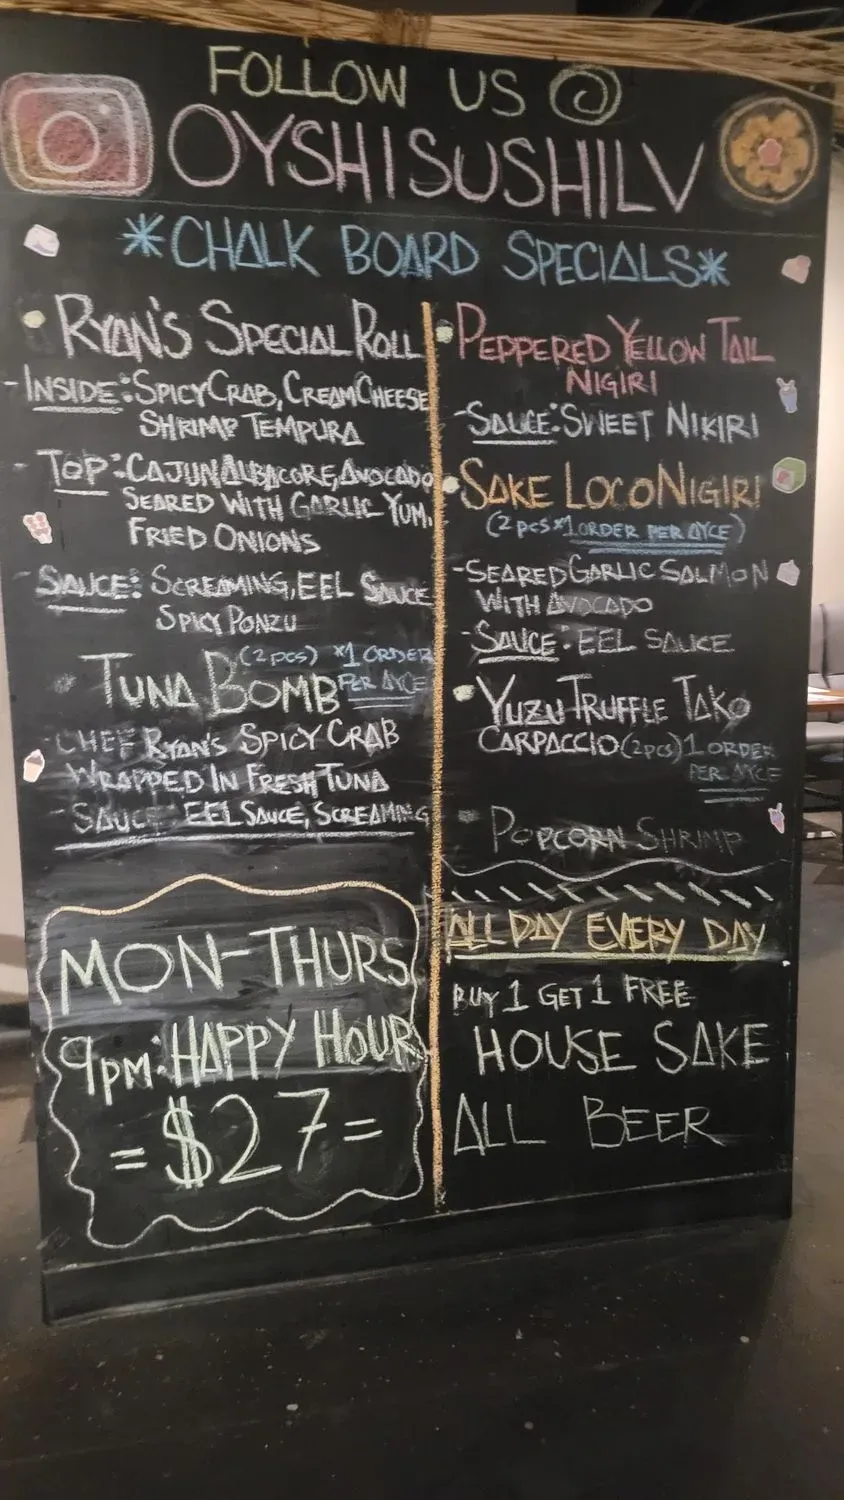 FOLLOW US
OYSHISUSHILV
*CHALK BOARD SPECIALS*
RYAN'S SPECIAL ROLL
- INSIDE: SPICY CRAB, CREAM CHEESE
SHRIMP TEMPURA
- TOP: CAJUN ALBACORE, AVOCADO
SEARED WITH GARLIC YUM,
FRIED ONIONS
- SAUCE: SCREAMING, EEL SAUCE
SPICY PONZU
TUNA BOMB (2 pcs) *1 ORDER
PER AYCE
- CHEF RYAN'S SPICY CRAB
WRAPPED IN FRESH TUNA
- SAUCE EEL SAUCE, SCREAMING
MON-THURS
9pm: HAPPY HOUR
= $27 =
PEPPERED YELLOW TAIL
NIGIRI
- SAUCE: SWEET NIKIRI
SAKE LOCO NIGIRI
(2 pcs *1 ORDER PER AYCE)
- SEARED GARLIC SALMON
WITH AVOCADO
- SAUCE: EEL SAUCE
YUZU TRUFFLE TAKO
CARPACCIO (2pcs) 1 ORDER
PER AYCE
POPCORN SHRIMP
ALL DAY EVERY DAY
BUY 1 GET 1 FREE
HOUSE SAKE
ALL BEER